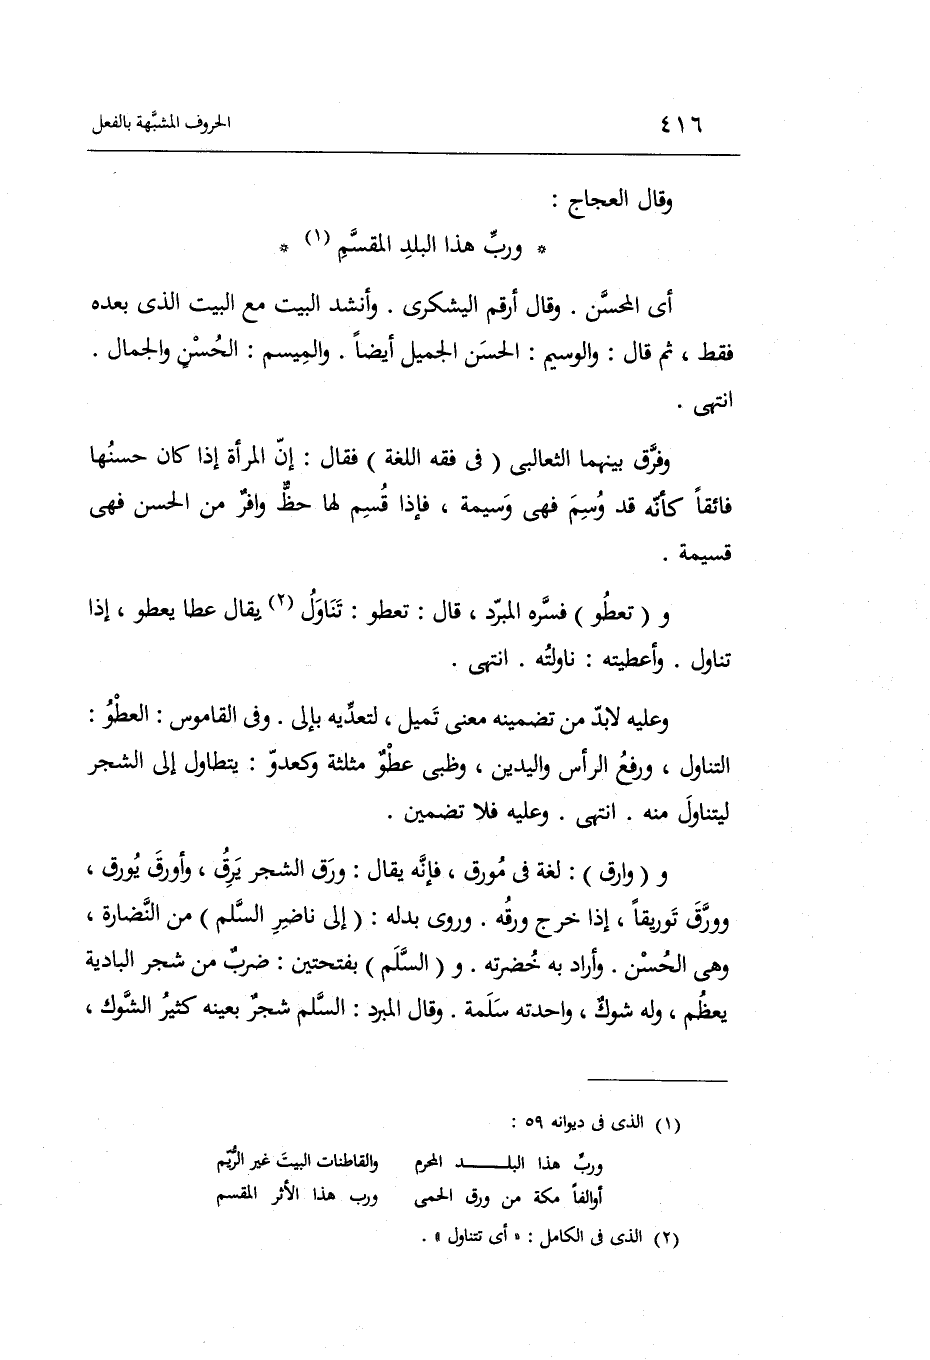 ٤١٦ الحروف المشبَّهة بالفعل
وقال العجاج :
* وربِّ هذا البلدِ المقسَّمِ (١) *
أى المحسَّن . وقال أرقم اليشكرى . وأنشد البيت مع البيت الذى بعده
فقط ، ثم قال : والوسيم : الحسَن الجميل أيضاً . والمِيسم : الحُسْنِ والجمال .
انتهى .
وفرَّق بينهما الثعالبى ( فى فقه اللغة ) فقال : إنّ المرأة إذا كان حسنُها
فائقاً كأنّه قد وُسِمَ فهى وَسيمة ، فإذا قُسِم لها حظٌّ وافرٌ من الحسن فهى
قسيمة .
و ( تعطُو ) فسَّره المبرّد ، قال : تعطو : تَنَاوَلُ (٢) يقال عطا يعطو ، إذا
تناول . وأعطيته : ناولتُه . انتهى .
وعليه لابدّ من تضمينه معنى تَميل ، لتعدِّيه بإلى . وفى القاموس : العطْوُ :
التناول ، ورفعُ الرأس واليدين ، وظبى عطْوٌ مثلثة وكعدوّ : يتطاول إلى الشجر
ليتناولَ منه . انتهى . وعليه فلا تضمين .
و ( وارق ) : لغة فى مُورق ، فإنَّه يقال : ورَق الشجر يَرِقُ ، وأورقَ يُورق ،
وورَّقَ تَوريقاً ، إذا خرج ورقُه . وروى بدله : ( إلى ناضِرِ السَّلم ) من النَّضارة ،
وهى الحُسْن . وأراد به خُضرته . و ( السَّلَم ) بفتحتين : ضربٌ من شجر البادية
يعظُم ، وله شوكٌ ، واحدته سَلَمة . وقال المبرد : السَّلم شجرٌ بعينه كثيرُ الشَّوك ،
(١) الذى فى ديوانه ٥٩ :
وربِّ هذا البلـــــد المحرم والقاطنات البيتَ غير الرُّيَّم
أوالفاً مكة من ورق الحمى ورب هذا الأثر المقسم
(٢) الذى فى الكامل : « أى تتناول » .